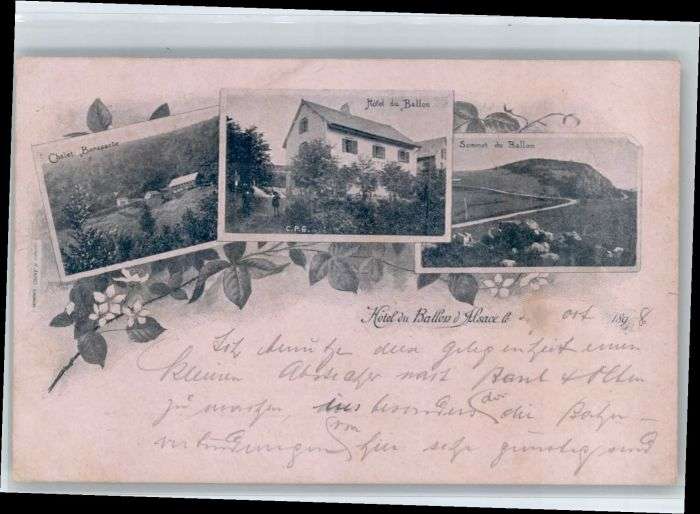 Hôtel du Ballon
Chalet Bonaparte
Sommet du Ballon
C.P.G.
Hôtel du Ballon d'Alsace, le oct 1898
Ich benutze diese gelegenheit einen
kleinen Abstecher nach Basel & Olten
zu machen, ins besonders da die Bahn-
verbindungen von hier sehr günstig sind